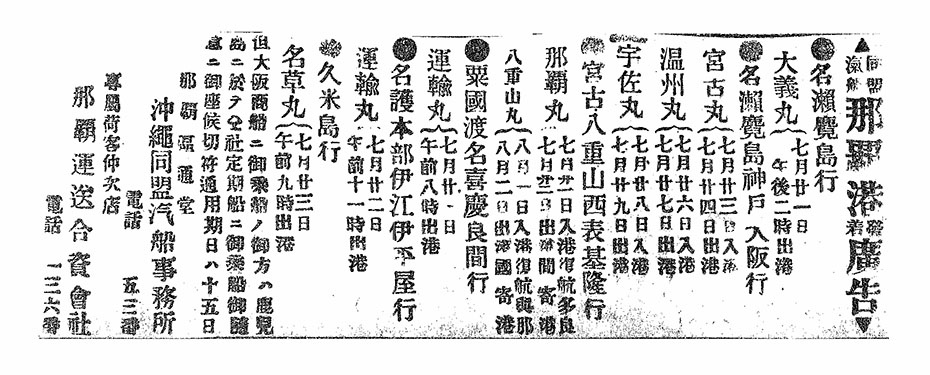 同盟
那覇港
廣告
●名瀬鹿島行
大義丸
七月廿一日
午後二時出港
●名瀬鹿島神戸大阪行
宮古丸
七月廿三日入港
七月廿四日出港
温州丸
七月廿六日入港
七月廿七日出港
宇佐丸
七月廿八日入港
七月廿九日出港
●宮古八重山西表基隆行
那覇丸
八重山丸
八月一日入港復航與那
八月二日出港國寄港
●粟國渡名喜慶良間行
運輸丸
午前八時出港
●名護本部伊江伊平屋行
運輸丸
七月廿二日
午前十一時出港
●久米島行
名草丸
七月廿三日
午前九時出港
但大阪商船ニ御乗船ノ御方ハ鹿児
島ニ於テ仝社定期船ニ御乗船御随
意ニ御座候切符通用期日ハ十五日
那覇通堂
沖繩同盟汽船事務所
電話 五三番
專屬荷客仲次店
那覇運送合資會社
電話 一三六番